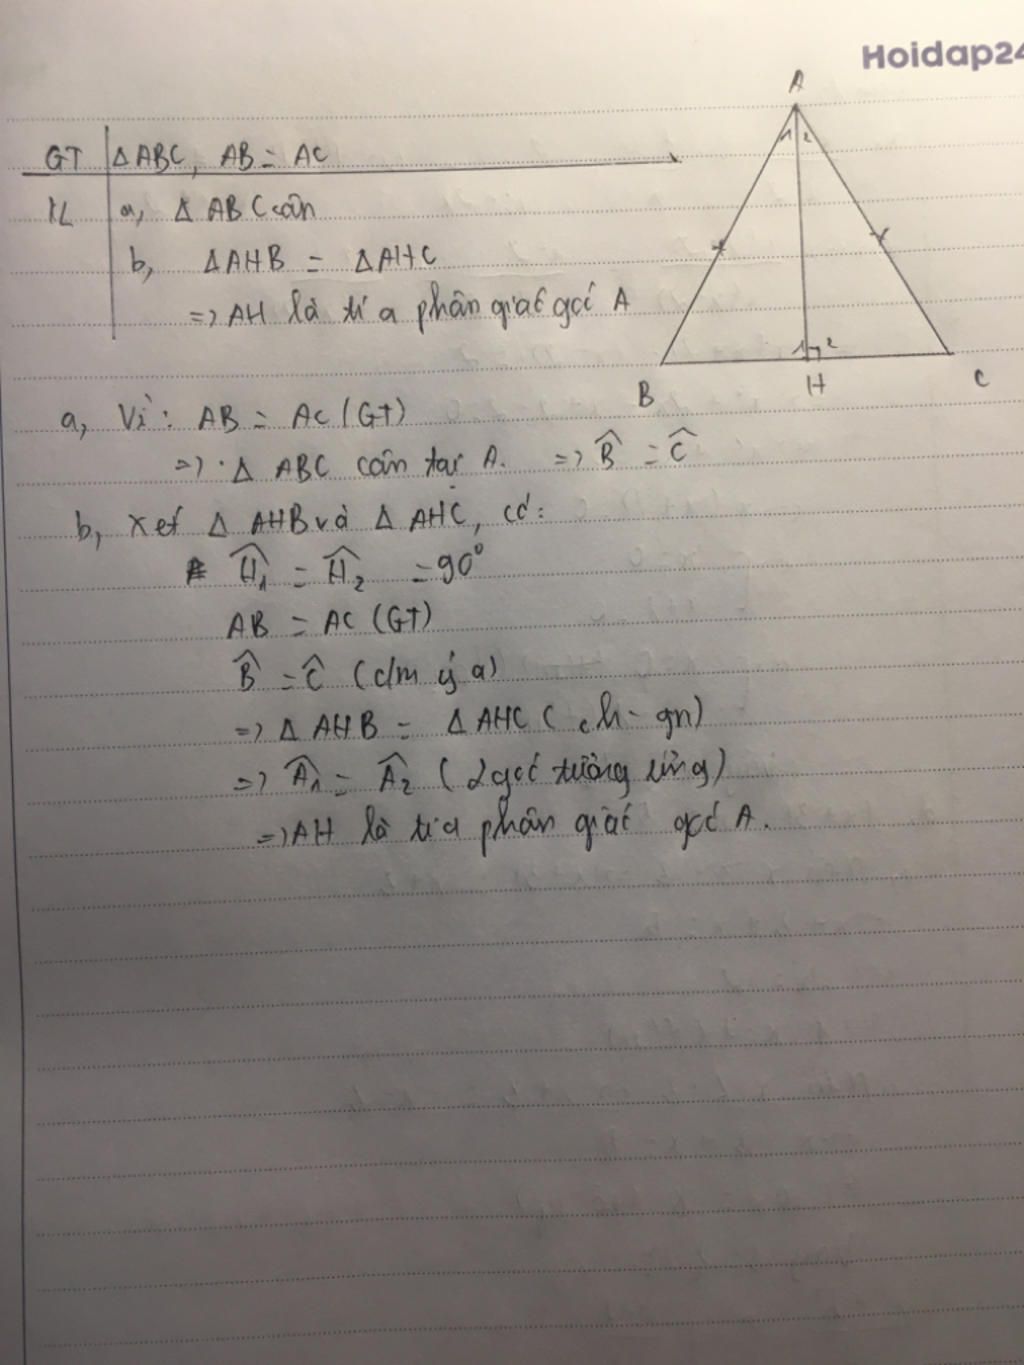 Hoidap24
GT ΔABC, AB = AC
KL a, Δ ABC cân
b, ΔAHB = ΔAHC
=> AH là tia phân giác góc A
A
1 2
1 2
B H C
a, Vì: AB = AC (GT)
=> Δ ABC cân tại A. => B̂ = Ĉ
b, Xét Δ AHB và Δ AHC, có:
Ĥ₁ = Ĥ₂ = 90°
AB = AC (GT)
B̂ = Ĉ (c/m ý a)
=> Δ AHB = Δ AHC (ch - gn)
=> Â₁ = Â₂ (2 góc tương ứng)
=> AH là tia phân giác góc A.